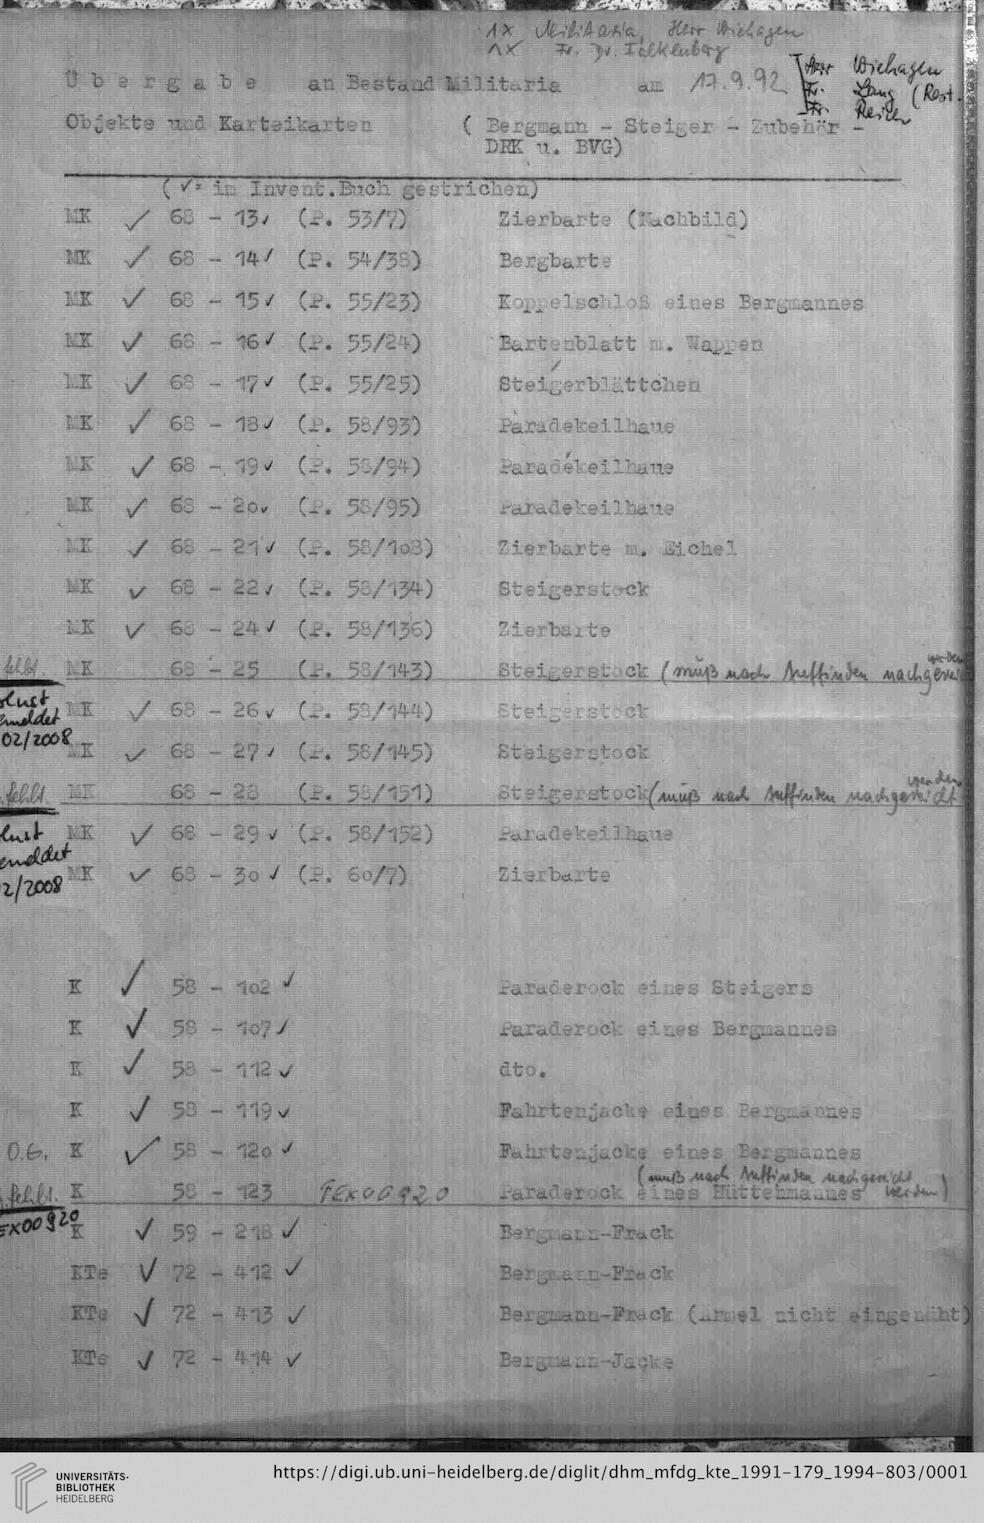 1x Militaria, Herr Wiehagen
1x Fr. Dr. Falkenberg
Übergabe an Bestand Militaria am 17.9.92
Herr Wiehagen
Fr. Lang (Rest.
Fr.
Objekte und Karteikarten ( Bergmann - Steiger - Zubehör -
DRK u. BVG)
(✓= im Invent.Buch gestrichen)
MK ✓ 68 - 13✓ (P. 53/7) Zierbarte (Nachbild)
MK ✓ 68 - 14✓ (P. 54/38) Bergbarte
MK ✓ 68 - 15✓ (P. 55/23) Koppelschloß eines Bergmannes
MK ✓ 68 - 16✓ (P. 55/24) Bartenblatt m. Wappen
MK ✓ 68 - 17✓ (P. 55/25) Steigerblättchen
MK ✓ 68 - 18✓ (P. 58/93) Paradekeilhaue
MK ✓ 68 - 19✓ (P. 58/94) Paradekeilhaue
MK ✓ 68 - 20✓ (P. 58/95) Paradekeilhaue
MK ✓ 68 - 21✓ (P. 58/108) Zierbarte m. Eichel
MK ✓ 68 - 22✓ (P. 58/134) Steigerstock
MK ✓ 68 - 24✓ (P. 58/136) Zierbarte
fehlt. MK 68 - 25 (P. 58/143) Steigerstock (muß nach Auffinden nachgereicht werden
MK ✓ 68 - 26✓ (P. 58/144) Steigerstock
lust
emeldet
02/2008
MK ✓ 68 - 27✓ (P. 58/145) Steigerstock
fehlt MK 68 - 28 (P. 58/151) Steigerstock (muß nach Auffinden nachgereicht werden
MK ✓ 68 - 29✓ (P. 58/152) Paradekeilhaue
lust
emeldet
02/2008
MK ✓ 68 - 30✓ (P. 60/7) Zierbarte
K ✓ 58 - 102✓ Paraderock eines Steigers
K ✓ 58 - 107✓ Paraderock eines Bergmannes
K ✓ 58 - 112✓ dto.
K ✓ 58 - 119✓ Fahrtenjacke eines Bergmannes
O.G. K ✓ 58 - 120✓ Fahrtenjacke eines Bergmannes
fehlt. K 58 - 123 TEX00920 Paraderock eines Hüttenmannes (muß nach Auffinden nachgereicht werden)
EX00920
K ✓ 59 - 218✓ Bergmann-Frack
KTe ✓ 72 - 412✓ Bergmann-Frack
KTe ✓ 72 - 413✓ Bergmann-Frack (Ärmel nicht eingenäht)
KTe ✓ 72 - 414✓ Bergmann-Jacke
UNIVERSITÄTS-
BIBLIOTHEK
HEIDELBERG
https://digi.ub.uni-heidelberg.de/diglit/dhm_mfdg_kte_1991-179_1994-803/0001